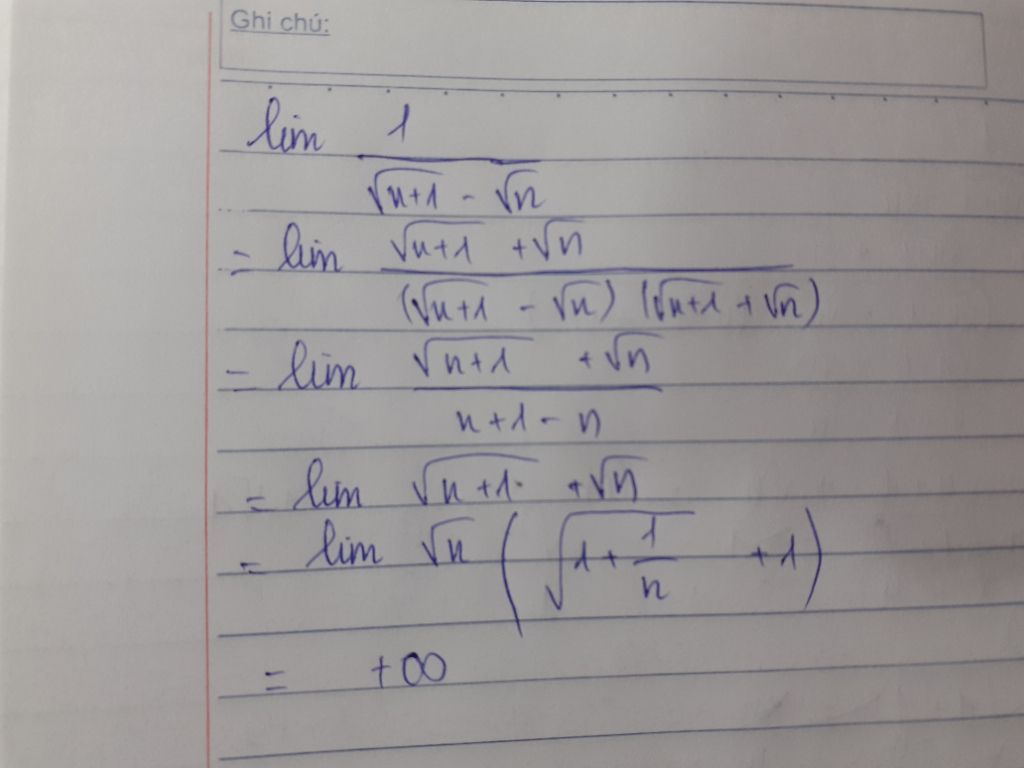 Ghi chú:
lim 1 / (√(n+1) - √n)
= lim (√(n+1) + √n) / ((√(n+1) - √n) (√(n+1) + √n))
= lim (√(n+1) + √n) / (n+1-n)
= lim √(n+1) + √n
= lim √n (√(1 + 1/n) + 1)
= +∞